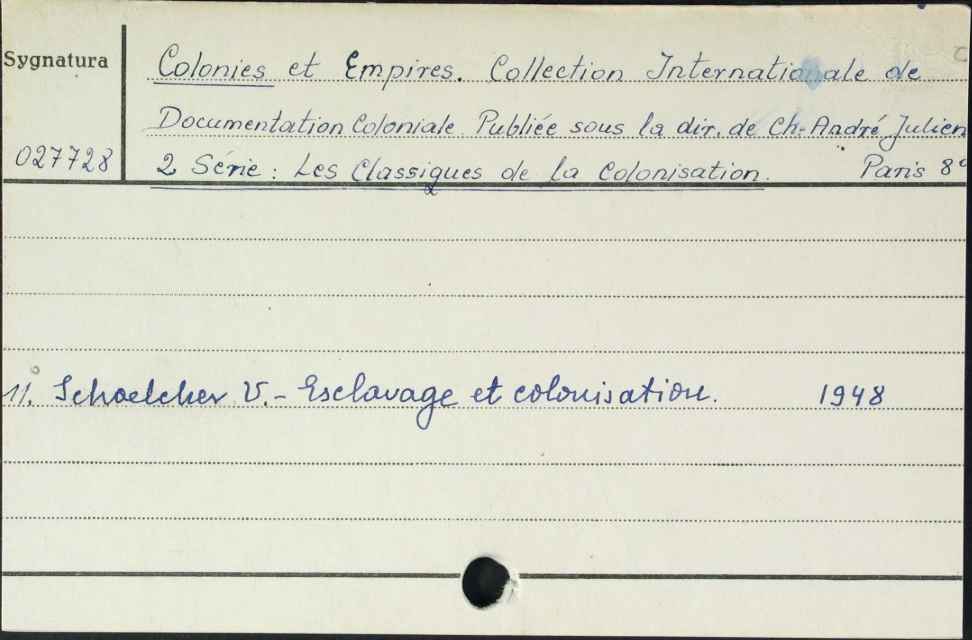 Sygnatura
Colonies et Empires. Collection Internationale de
Documentation Coloniale. Publiée sous la dir. de Ch.-André Julien
027728
2 Série : Les Classiques de la Colonisation. Paris 8°
11. Schoelcher V. - Esclavage et colonisation. 1948